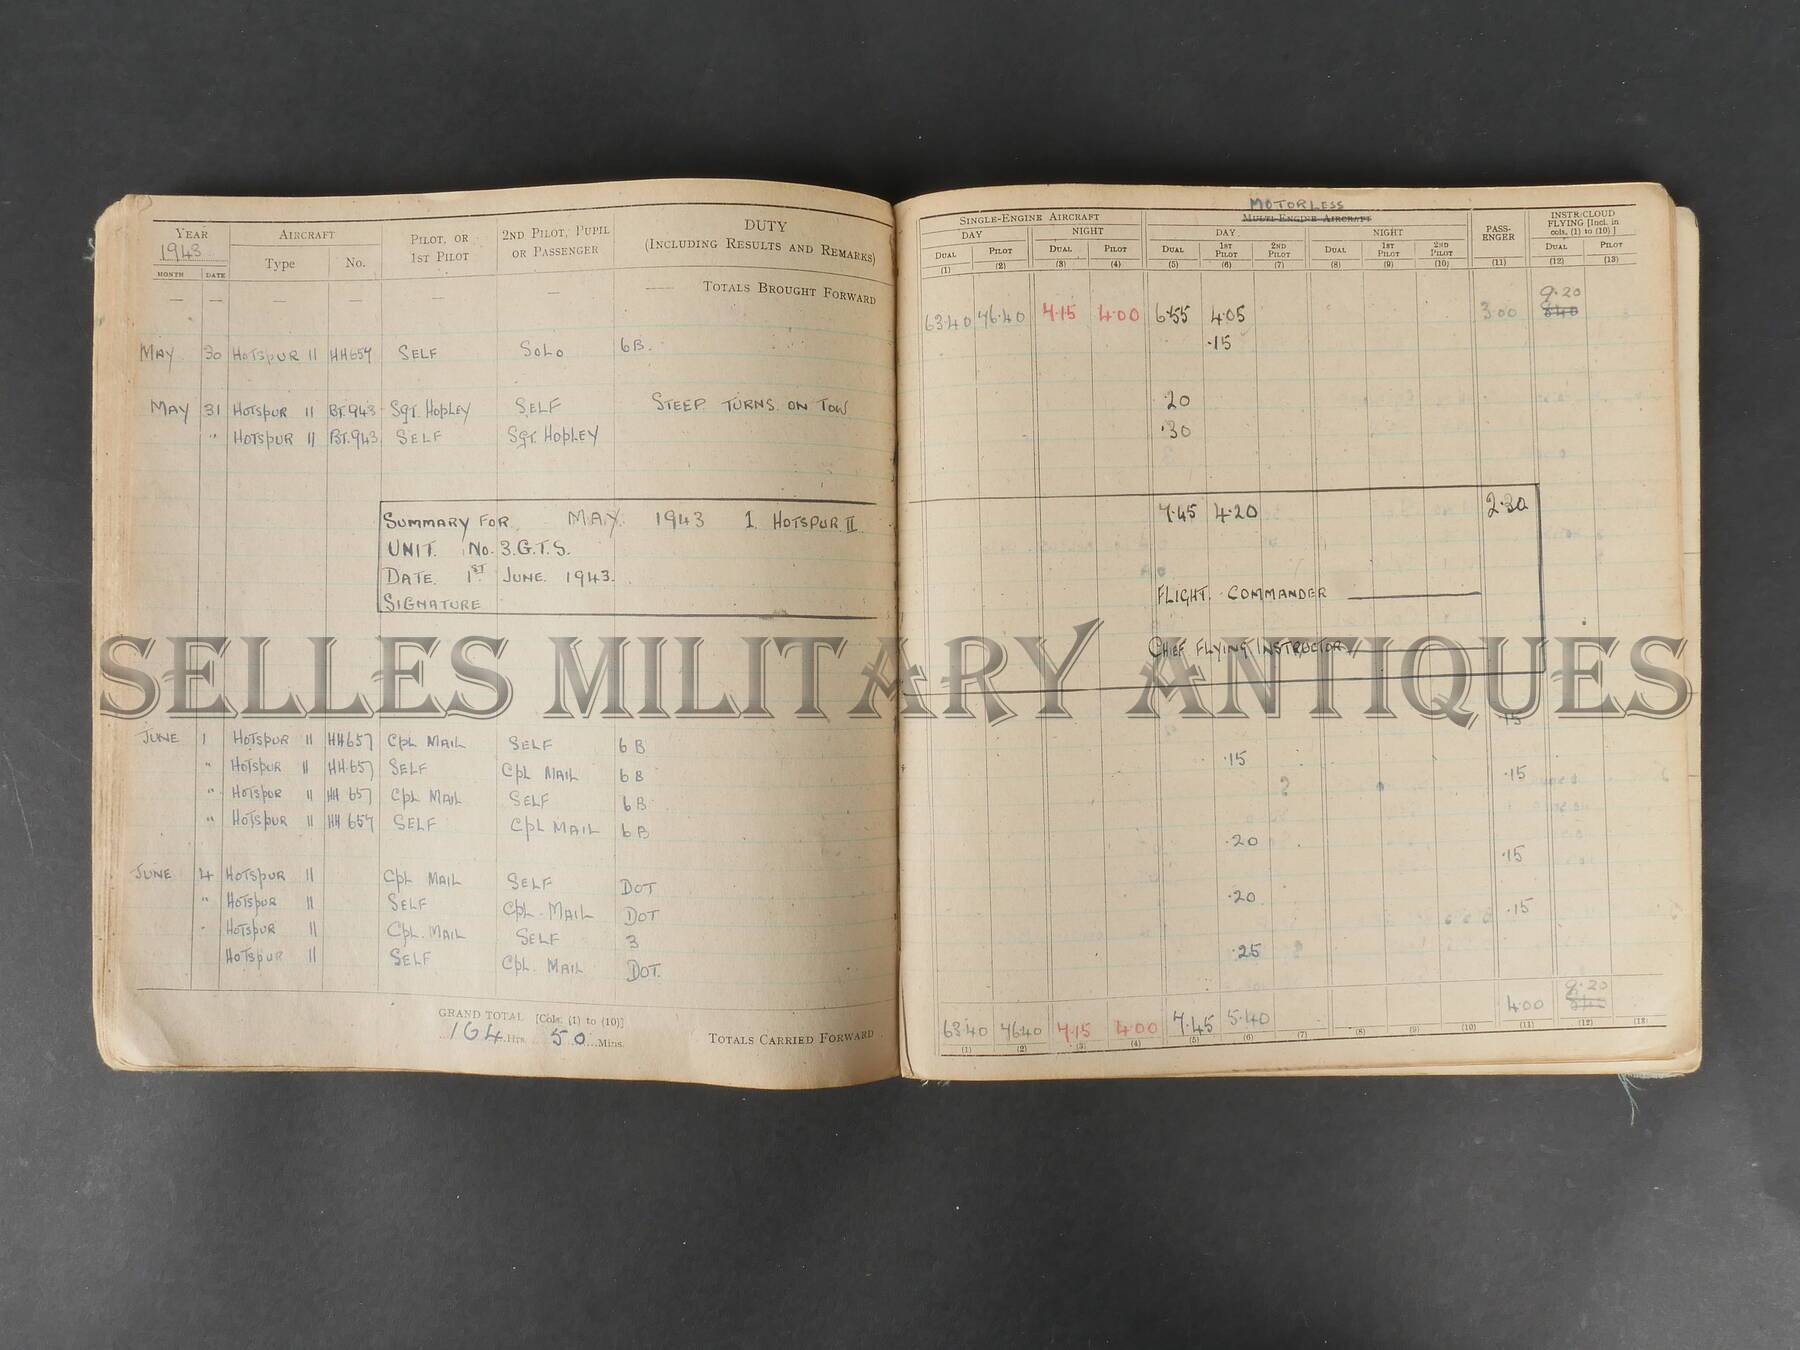 YEAR AIRCRAFT PILOT, OR 1ST PILOT 2ND PILOT, PUPIL OR PASSENGER DUTY (INCLUDING RESULTS AND REMARKS)
1943 Type No.
MONTH DATE
— — — — — — —— TOTALS BROUGHT FORWARD
MAY 30 HOTSPUR II HH657 SELF SOLO 6B.
MAY 31 HOTSPUR II BT.943 SGT. HOPLEY SELF STEEP TURNS ON TOW
" HOTSPUR II BT.943 SELF SGT. HOPLEY
SUMMARY FOR MAY 1943 1 HOTSPUR II
UNIT. No. 3.G.T.S.
DATE 1ST JUNE 1943.
SIGNATURE
JUNE 1 HOTSPUR II HH657 CPL MAIL SELF 6B
" HOTSPUR II HH.657 SELF CPL MAIL 6B
" HOTSPUR II HH 657 CPL MAIL SELF 6B
" HOTSPUR II HH 657 SELF CPL MAIL 6B
JUNE 4 HOTSPUR II CPL MAIL SELF DOT
" HOTSPUR II SELF CPL. MAIL DOT
" HOTSPUR II CPL. MAIL SELF 3
HOTSPUR II SELF CPL. MAIL DOT.
GRAND TOTAL [Cols. (1) to (10)]
164 Hrs. 50 Mins.
TOTALS CARRIED FORWARD
MOTORLESS
SINGLE-ENGINE AIRCRAFT MULTI-ENGINE AIRCRAFT PASS-ENGER INSTR/CLOUD FLYING [Incl. in cols. (1) to (10)]
DAY NIGHT DAY NIGHT
DUAL PILOT DUAL PILOT DUAL 1ST PILOT 2ND PILOT DUAL 1ST PILOT 2ND PILOT DUAL PILOT
(1) (2) (3) (4) (5) (6) (7) (8) (9) (10) (11) (12) (13)
9.20
63.40 76.40 4.15 4.00 6.55 4.05 3.00 8.40
.15
.20
.30
7.45 4.20 2.30
FLIGHT. COMMANDER
CHIEF FLYING INSTRUCTOR
.15
.15
.15
.20
.15
.20
.15
.25
9.20
63.40 76.40 4.15 4.00 7.45 5.40 4.00
(1) (2) (3) (4) (5) (6) (7) (8) (9) (10) (11) (12) (13)
SELLES MILITARY ANTIQUES